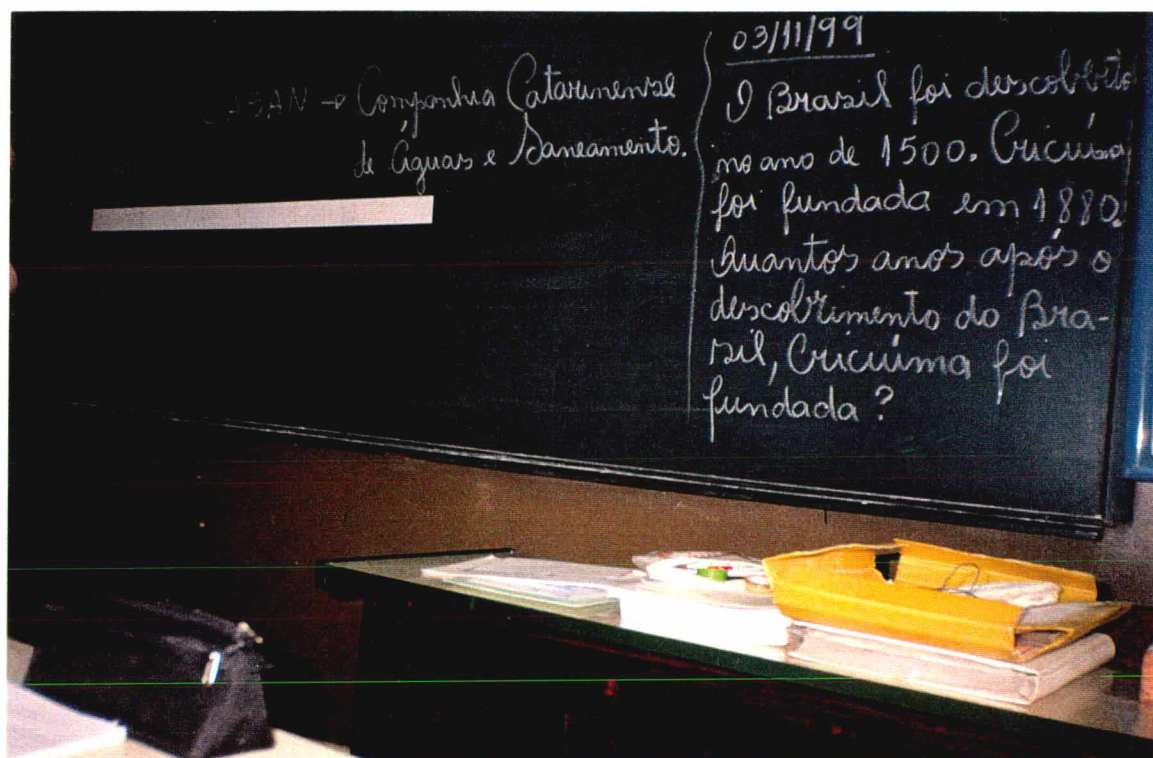 → Companhia Catarinense
de Águas e Saneamento.
03/11/99
O Brasil foi descoberto
no ano de 1500. Criciúma
foi fundada em 1880.
Quantos anos após o
descobrimento do Bra-
sil, Criciúma foi
fundada?